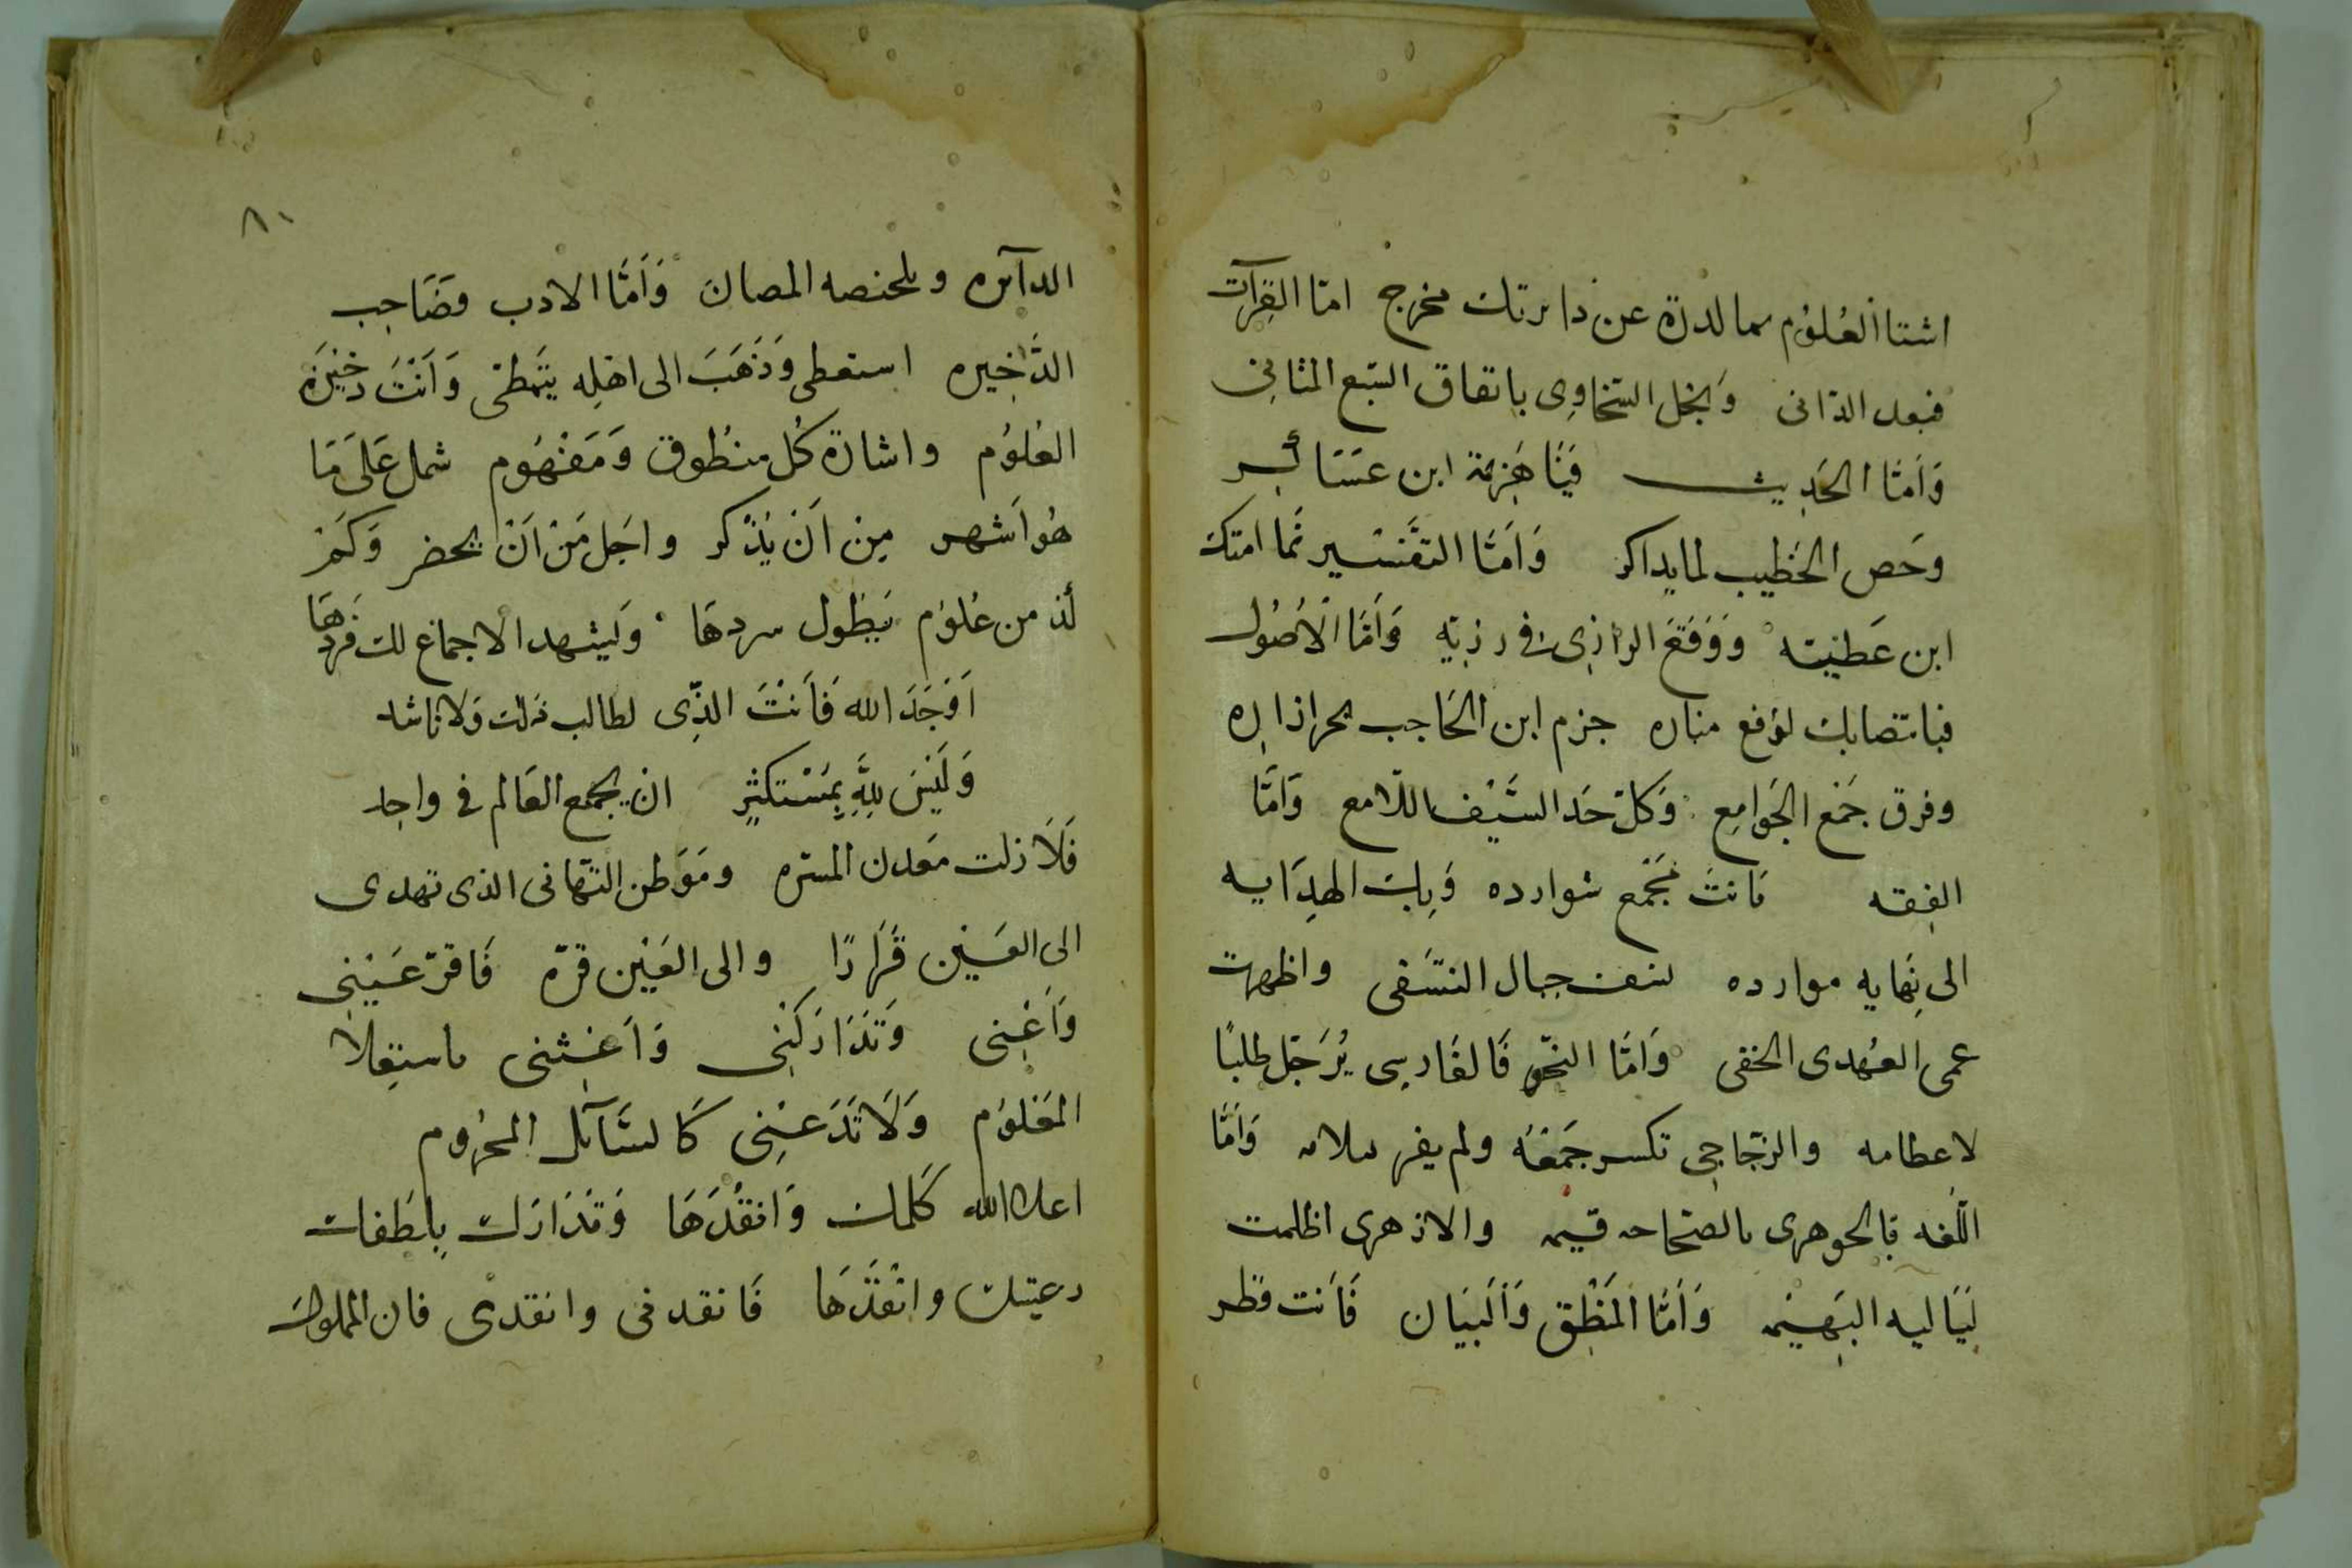 اشتا العُلوُم مما لدرة عن دايرتك مخرج امّا القِرآت
فبعد الدّانى وَبخل السّخاوِى باتفاق السّبع المثانِى
وَامَّا الحَدِيث فيَا هَزِيمَة ابن عسَاكر
وحَص الخَطِيب لما يداكر وَامَّا التفَسْير فما امتك
ابن عَطيّته وَوَقعَ الرازِى فى رزيّه وَامَّا الاُصُول
فبانتصابك لرفع مناره جزم ابن الحَاجب بحرازاره
وفرق جَمْع الجَوامِع وَكلّ حَد السَّيْف اللّامع وَامَّا
الفِقه فانتَ مَجْمع شوارده وَبِك الهِدَايه
الى نِهايه موارده نسف جبال النسَفى واظهرت
عمى العهدى الخفى وَامَّا النّحو فَالفَارسِى يُرَجّل طلبًا
لاعطامه والزجّاجى تكسر جَمْعُهُ ولم يفر بسلام وَامَّا
اللّغه فالجوهرى مالصحَاحه قيمه والازهرى اظلمت
ليَاليه البَهيَمه وَامَّا المَنْطِق وَالبيَان فَانت قطر
٨٠
الدآئره وملخصه المصان وَامَّا الادب فصَاحِب
الذَّخِيره استعطى وَذَهَبَ الى اهْلِه يَتَمَطّى وَانْتَ ذخيْرَة
العُلوُم واشارة كُل منْطُوق وَمَفْهُوم شمل عَلىَ مَا
هُو اَشهر مِن اَن يُذْكر واجَل مَنْ اَنْ يحضر وَكَمْ
لَك من عُلوُم يَطُول سردهَا وَليَشهد الاجماع لك فردهَا
اَوْجَدَ الله فَانْتَ الذِّى لطالب ذلك وَلا ناشد
وَلَيْسَ لِلَّهِ بِمُسْتكْثِرٍ ان يجْمع العَالم فى واحِد
فَلَا زلت مَعدن المسرّه ومَوَطن التهَانى الذى تهدى
الى العَيْن قَرَارًا والى العَيْن قرّه فَاقرّ عَيْنِى
وَاَغِنِى وَتَدَارَكْنِى وَاَغِثنى باستِعلَا
المَعْلوُم وَلَا تَدَعْنِى كَالسَّآئل المحْرُوم
اعلا الله كَلماتك وَانقُدَهَا وَتَدَارَك بِلطَفك
رعيّتك وانْقَذَهَا فَانقدنى وانقدى فان المملوك